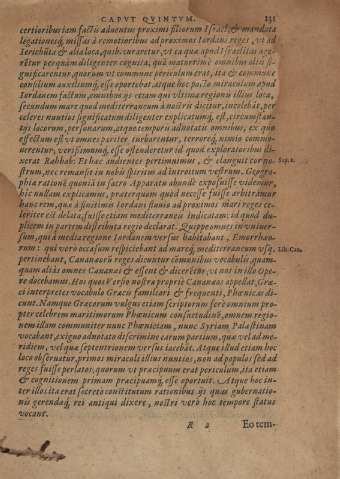 CAPVT QVINTVM. 131
certioribus iam factis aduentus proximi filiorum Israel, & mandata
legationeq́; missas à remotioribus ad proximos Iordanis reges, vt ad
Ierichûta & alia loca, quib. curaretur, vt ea quæ apud Israelitas age-
rẽtur perquàm diligenter cognita, quã maturrimè omnibus aliis si-
gnificarentur, quorum vt commune periculum erat, ita & commune
consilium auxiliumq́; esse oportebat, atque hoc pacto miraculum apud
Iordanem factum, omnibus ijs etiam qui vlteriùs regionis illius loca,
secundùm mare quod mediterraneum à nostris dicitur, incolebãt, per
celeres nuntios significatum diligenter explicatumq́; est, circumstan-
tijs locorum, personarum, atque temporis adnotatis omnibus, ex quo
effectum est vt omnes pariter turbarentur, terroreq́; nimio commo-
uerentur, verissimumq́; esse ostenderetur id quod exploratoribus di-
xerat Rahhab: Et hæc audientes pertimuimus, & elanguit cor no-
strum, nec remansit in nobis spiritus ad introitum vestrum. Geogra-
phiæ rationẽ quoniã in sacro Apparatu abundè exposuisse videmur,
hîc nullam explicamus, præterquàm quod necesse fuisse arbitramur
hanc rem, quæ à finitimis Iordani fluuio ad proximos mari reges ce-
leriter est delata, fuisse etiam mediterraneis indicatam: id quod du-
plicem in partem distributa regio declarat. Quippe omnes in vniuer-
sum, qui à media regione Iordanem versus habitabant, Emorrhæo-
rum: qui vero occasum respiciebant ad mareq́; mediterraneum vsq́;
pertinebant, Cananæorũ reges dicuntur cõmunibus vocabulis, quam-
quam aliàs omnes Cananæi & essent & dicerẽtur, vt nos in illo Ope-
re docebamus. Hos quas Verbo nostro propriè Cananæos appellat, Græ-
ci interpretes vocabulo Græcis familiari & frequenti, Phœnicas di-
cunt. Namque Græcorum vulgus etiam scriptorum ferè omnium pro-
pter celebrem maritimorum Phœnicum consuetudinẽ, omnem regio-
nem illam communiter nunc Phœniciam, nunc Syriam Palæstinam
vocabant, exiguo adnotato discrimine earum partium, quæ vel ad me-
ridiem, vel quæ septentrionem versus iacebãt. Atque illud etiam hoc
loco obseruatur, primos miraculi illius nuntios, non ad populos sed ad
reges fuisse perlatos, quorum vt præcipuum erat periculum, ita etiam
& cognitionem primam præcipuamq́; esse oportuit. Atque hæc in-
ter illos ita erat secreto constitutum rationibus ijs quas gubernatio-
nis gerendæq́; rei antiqui dixere, nostri verò hoc tempore status
vocant.
Sup. 2.
Lib. Can.
R 2 Eo tem-